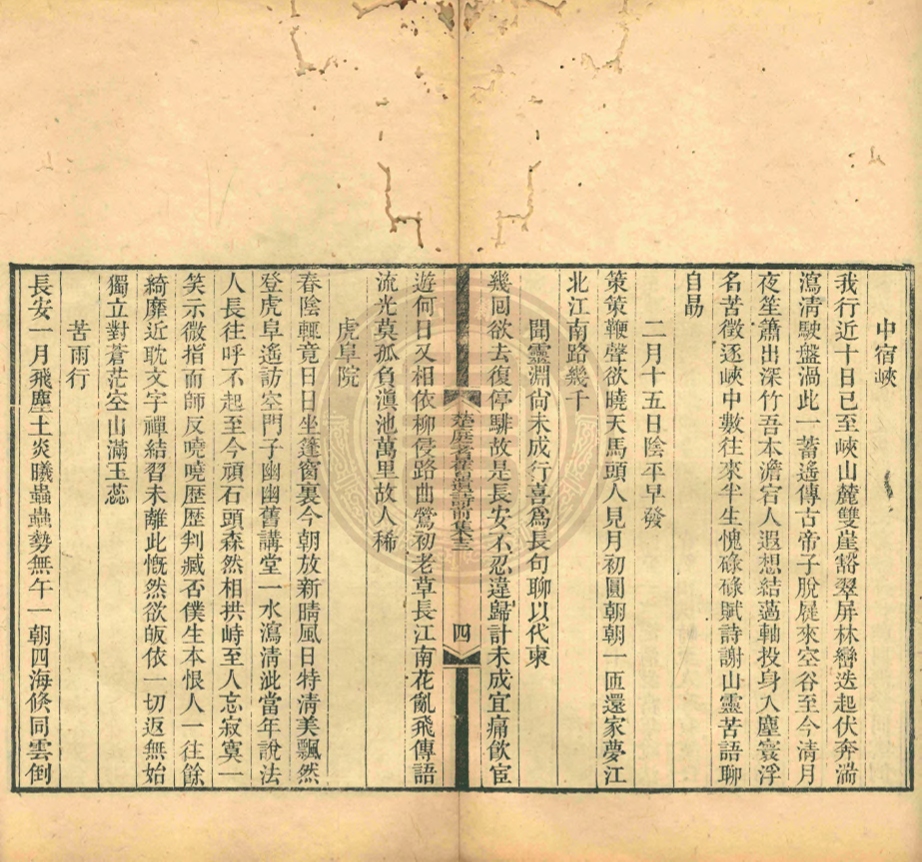 中宿峽
我行近十日已至峽山麓雙崖豁翠屏林巒迭起伏奔湍
瀉清駛盤渦此一蓄遙傳古帝子脫屣來空谷至今清月
夜笙簫出深竹吾本澹宕人遐想結薖軸投身入塵寰浮
名苦徵逐峽中數往來半生愧碌碌賦詩謝山靈苦語聊
自勗
二月十五日陰平早發
策策鞭聲欲曉天馬頭人見月初圓朝朝一匝還家夢江
北江南路幾千
聞靈淵尙未成行喜爲長句聊以代柬
幾囘欲去復停騑故是長安不忍違歸計未成宜痛飮宦
楚庭耆舊遺詩前集三
四
遊何日又相依柳侵路曲鶯初老草長江南花亂飛傳語
流光莫孤負滇池萬里故人稀
虎阜院
春陰輒竟日日坐篷窗裏今朝放新晴風日特淸美飄然
登虎阜遙訪空門子幽幽舊講堂一水瀉清泚當年說法
人長往呼不起至今頑石頭森然相拱峙至人忘寂寞一
笑示微指而師反嘵嘵歷歷判臧否僕生本恨人一往餘
綺靡近耽文字禪結習未離此慨然欲皈依一切返無始
獨立對蒼茫空山滿玉蕊
苦雨行
長安一月飛塵土炎曦蟲蟲勢無午一朝四海倏同雲倒